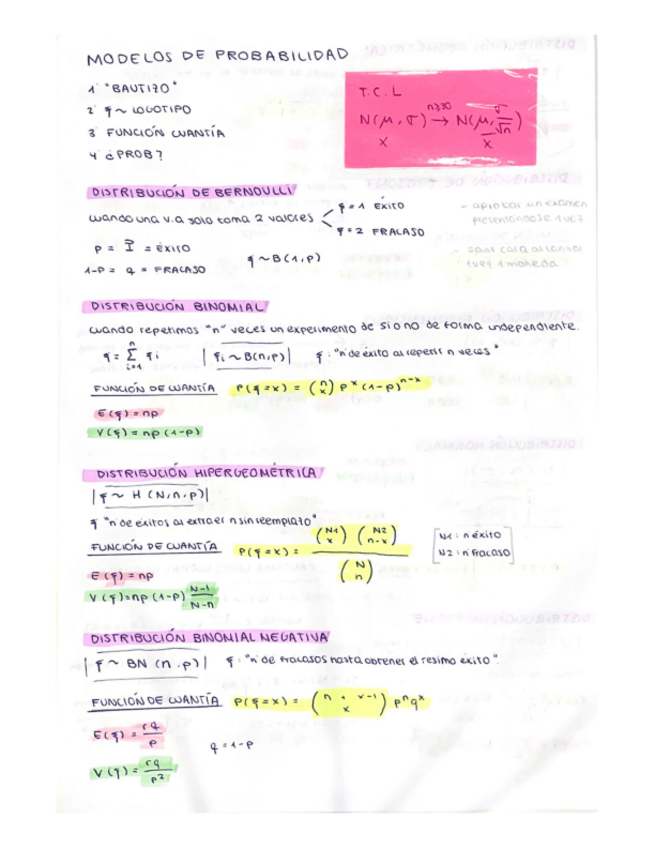 MODELOS DE PROBABILIDAD
1º "BAUTIZO"
2º ξ ~ LOGOTIPO
3º FUNCIÓN CUANTÍA
4º ¿PROB?
T.C.L
N(μ, σ) n≥30 → N(μ, σ/√n)
x x
DISTRIBUCIÓN DE BERNOULLI
cuando una v.a solo toma 2 valores
ξ = 1 ÉXITO
ξ = 2 FRACASO
- aprobar un examen
presentandose 1 vez
- sacar cara al lanzar
1 vez 1 moneda
P = = ÉXITO
1-P = q = FRACASO
ξ ~ B(1,p)
DISTRIBUCIÓN BINOMIAL
cuando repetimos "n" veces un experimento de si o no de forma independiente.
ξ = Σ ξi
n
i=1
| ξi ~ B(n,p) |
ξ : "nº de éxito al repetir n veces"
FUNCIÓN DE CUANTÍA P(ξ=x) = (n x) p^x (1-p)^n-x
E(ξ) = np
V(ξ) = np (1-p)
DISTRIBUCIÓN HIPERGEOMÉTRICA
| ξ ~ H (N,n,p) |
ξ "nº de exitos al extraer n sin reemplazo"
FUNCIÓN DE CUANTÍA P(ξ=x) = (N1 x) (N2 n-x) / (N n)
N1 : nº éxito
N2 : nº fracaso
E(ξ) = np
V(ξ) = np (1-p) N-1/N-n
DISTRIBUCIÓN BINOMIAL NEGATIVA
| ξ ~ BN (n,p) | ξ : "nº de fracasos hasta obtener el resimo éxito".
FUNCIÓN DE CUANTÍA P(ξ=x) = (n + x-1 x) p^n q^x
E(ξ) = rq/p
q = 1-p
V(ξ) = rq/p²